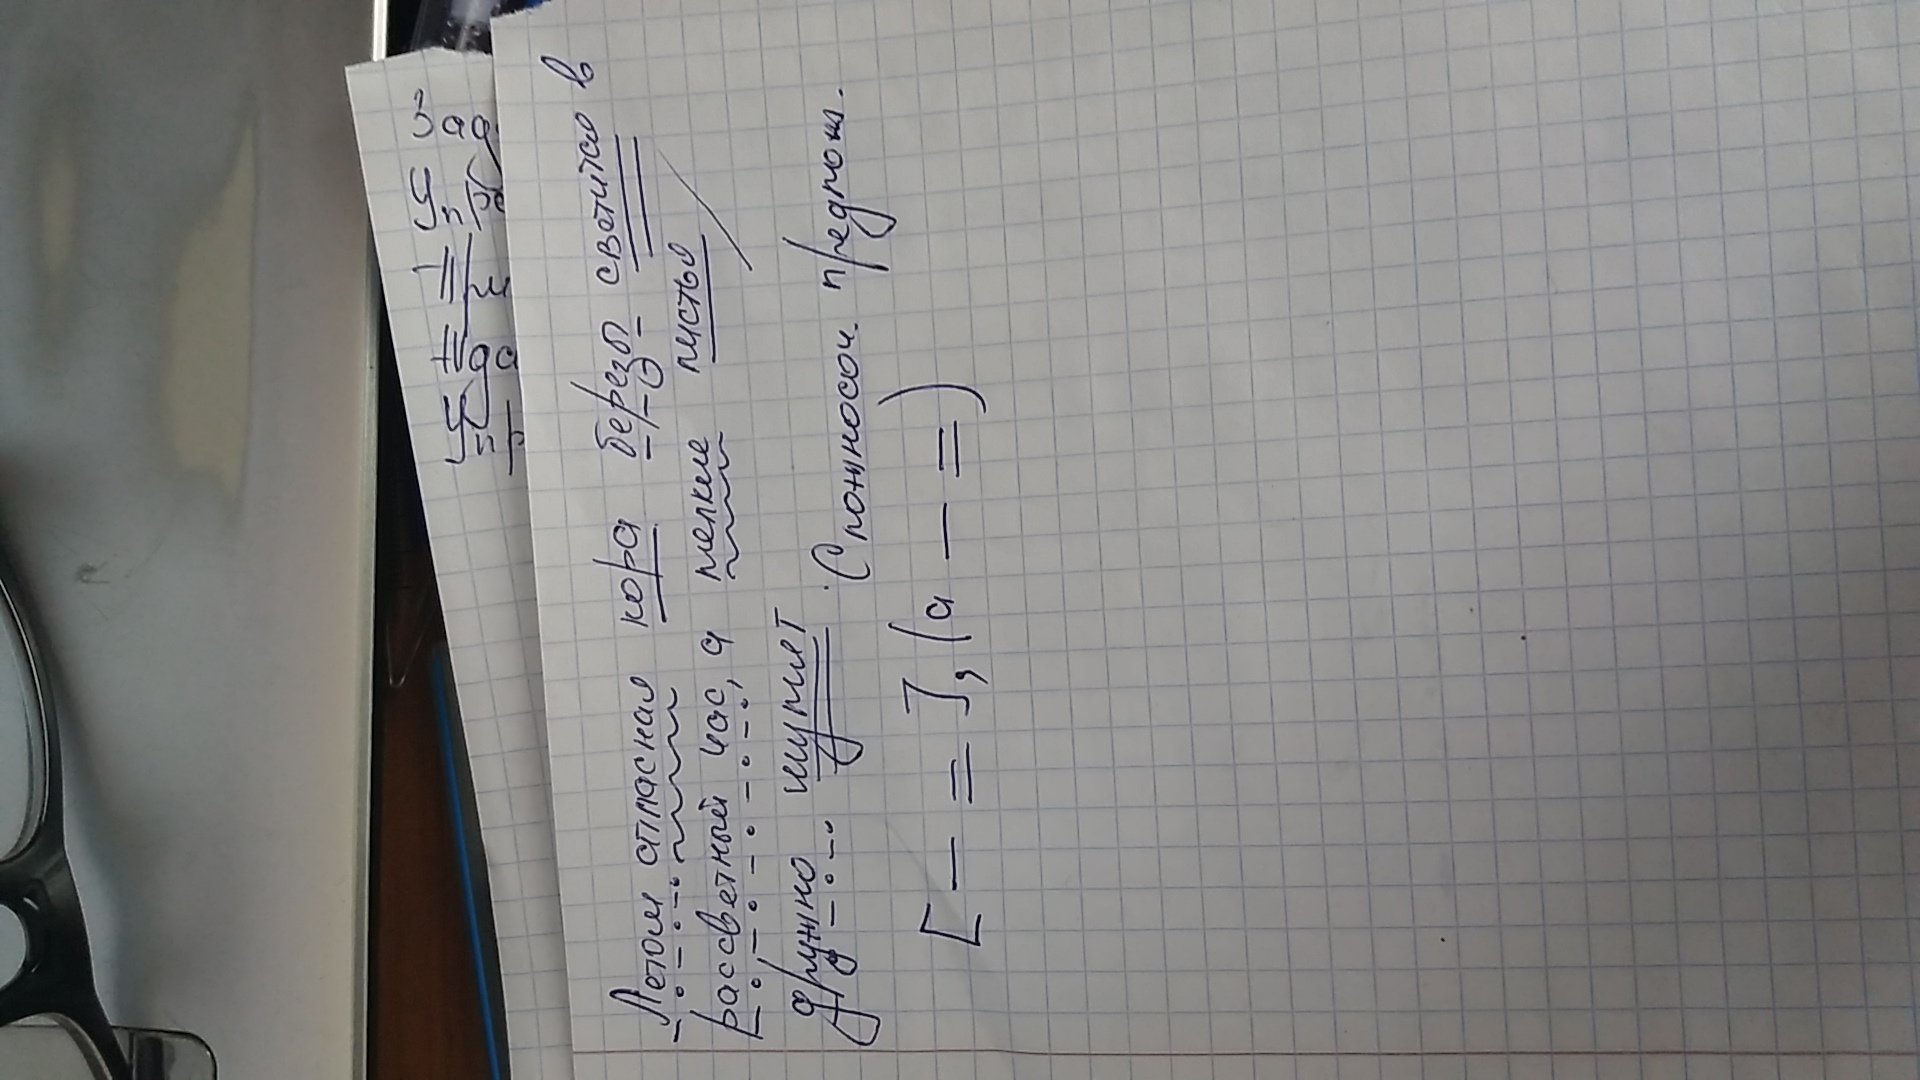 Летом атласная кора березы светится в
рассветный час, а мелкие листья
дружно шумят. Сложносоч. предлож.
[ – = ], (а – = )
Зад